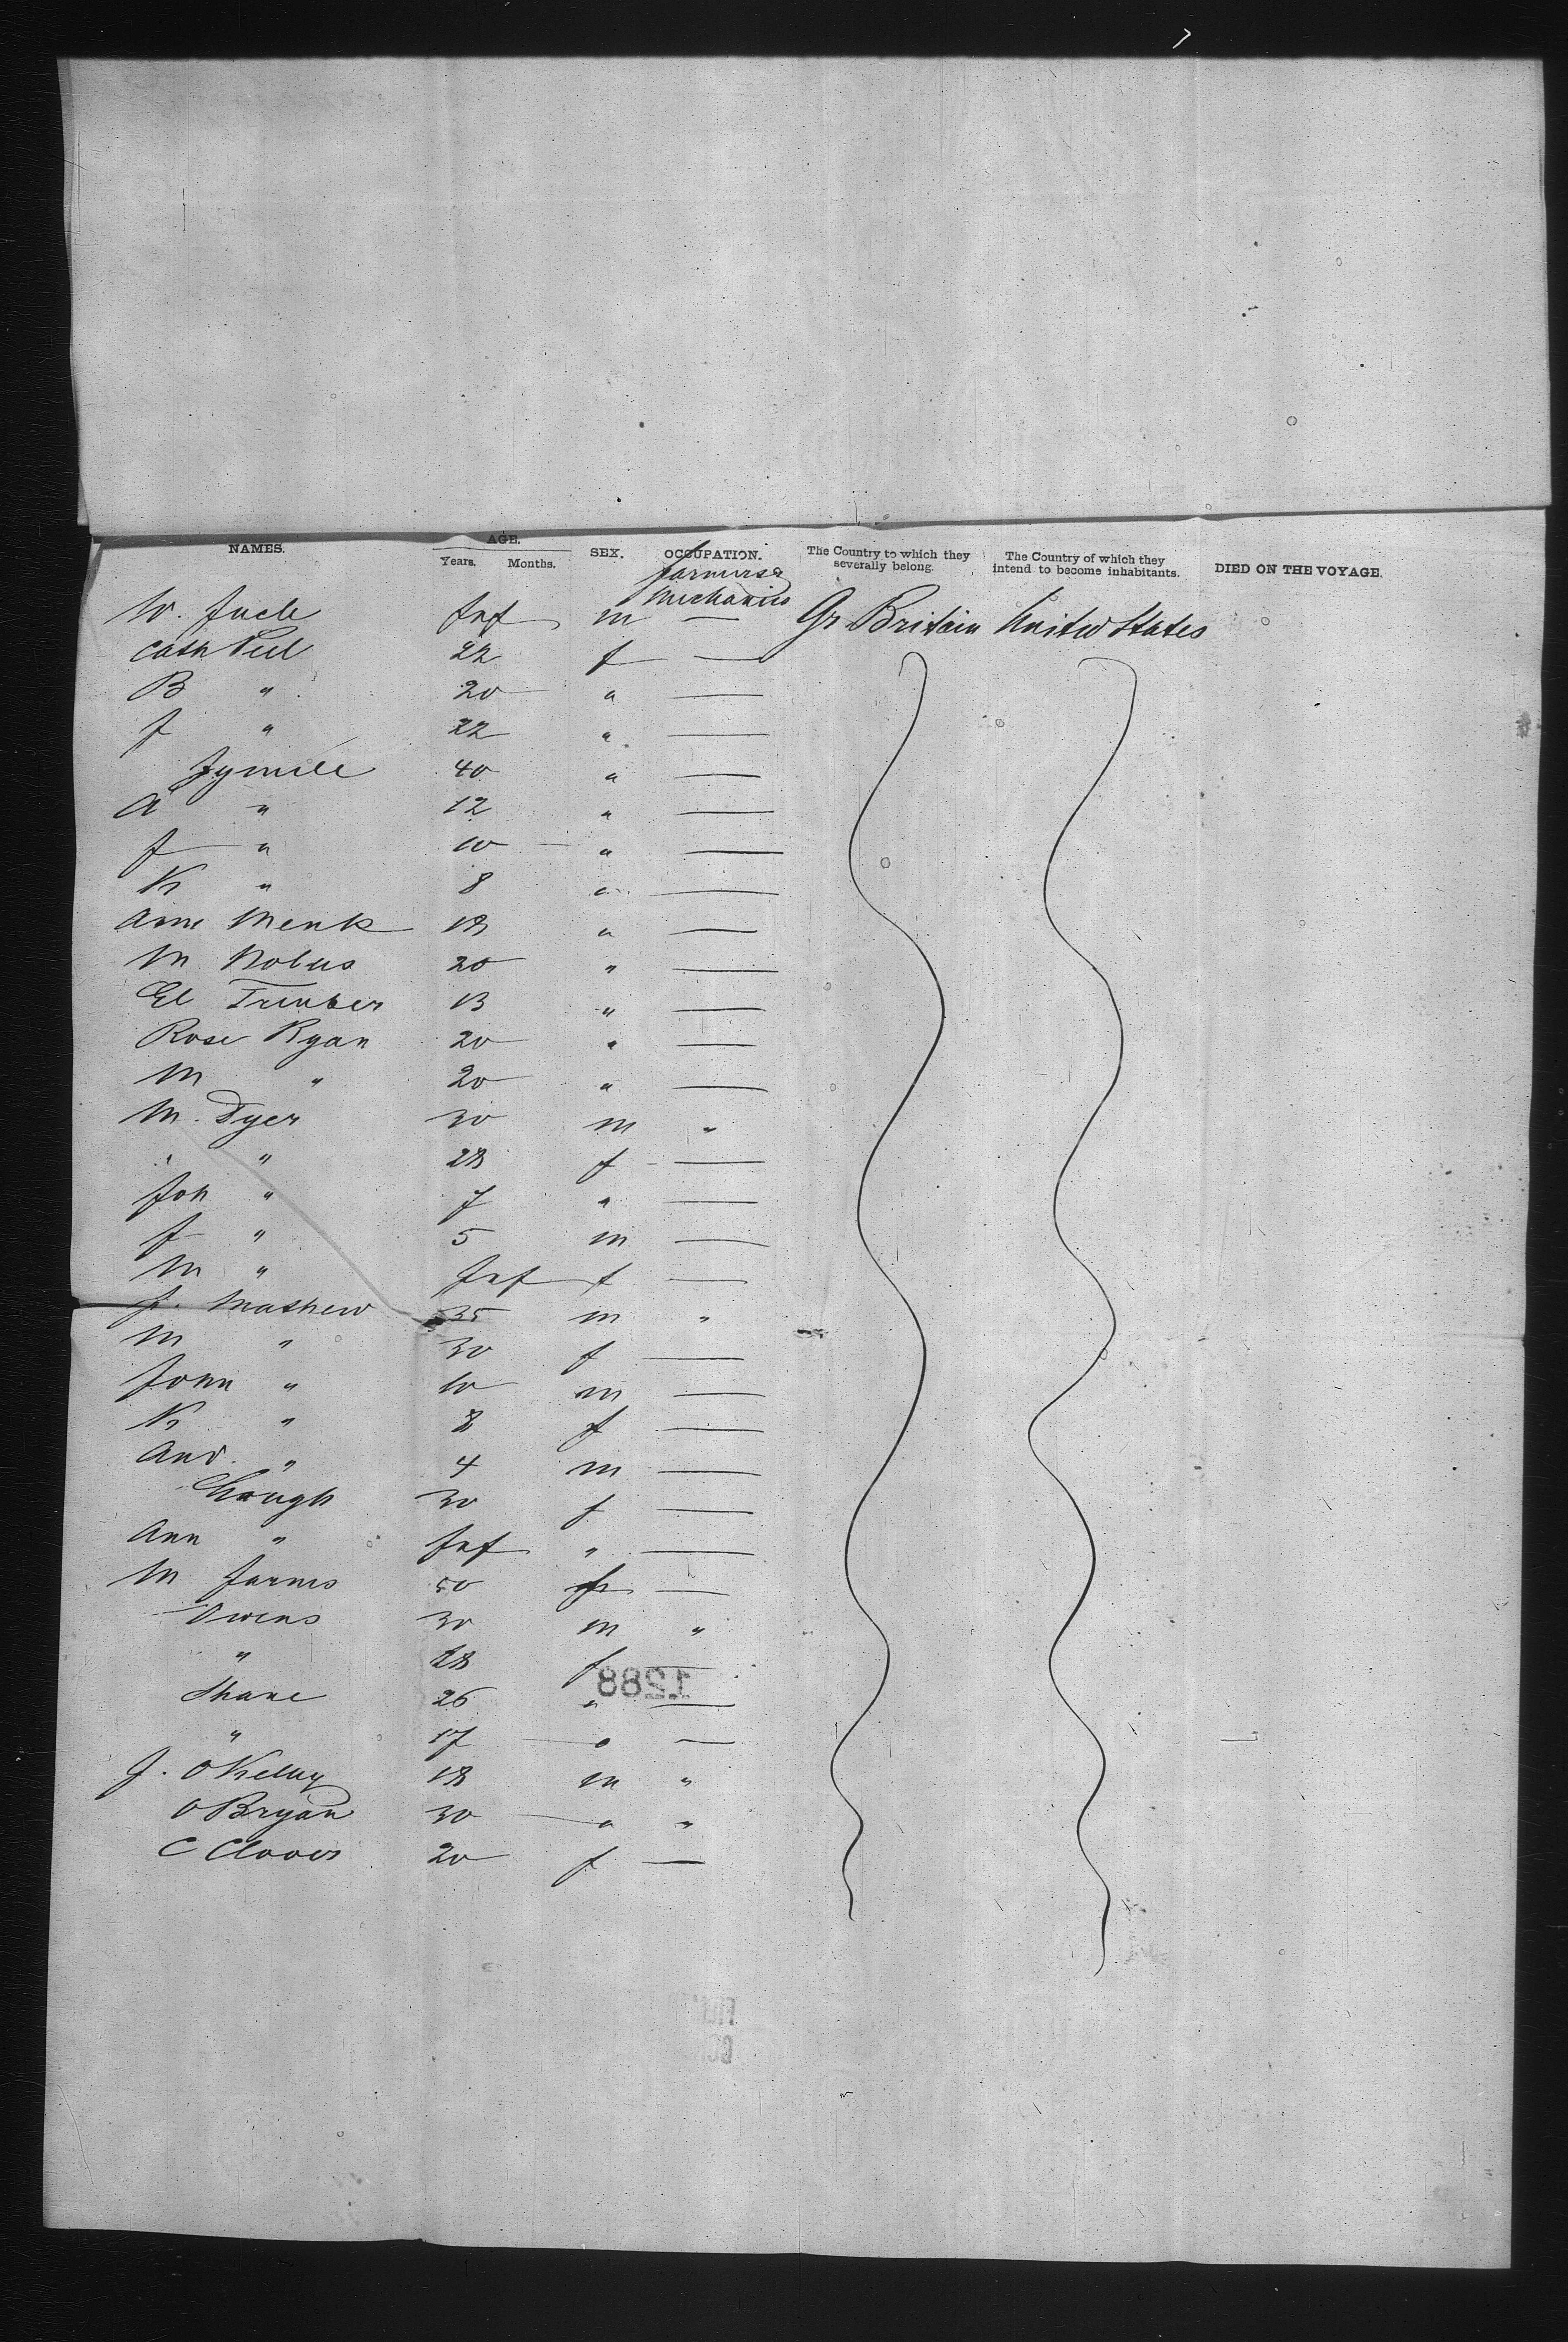 NAMES. AGE. Years. Months. SEX. OCCUPATION. The Country to which they severally belong. The Country of which they intend to become inhabitants. DIED ON THE VOYAGE.
Farmers & Mechanics
W. Inf m — Gr. Britain United States
Cath Peel 22 f —
B " 20 " —
J " 22 " —
40 " —
A " 12 " —
J " 10 " —
K " 8 " —
Ann Menk 18 " —
M 20 " —
El 13 " —
Rose Ryan 20 " —
M " 20 " —
M. Dyer 30 m "
" " 28 f —
Joh " 7 " —
J " 5 m —
M " Inf f —
J. Mathew 35 m "
M " 30 f —
John " 10 m —
K " 8 f —
And. " 4 m —
30 f —
Ann " Inf " —
M Jarms 50 f —
Owens 30 m "
" 28 f —
Shane 26 " —
" 17 " —
J. O Kelly 18 m "
O Bryan 30 " "
C 20 f —
1288